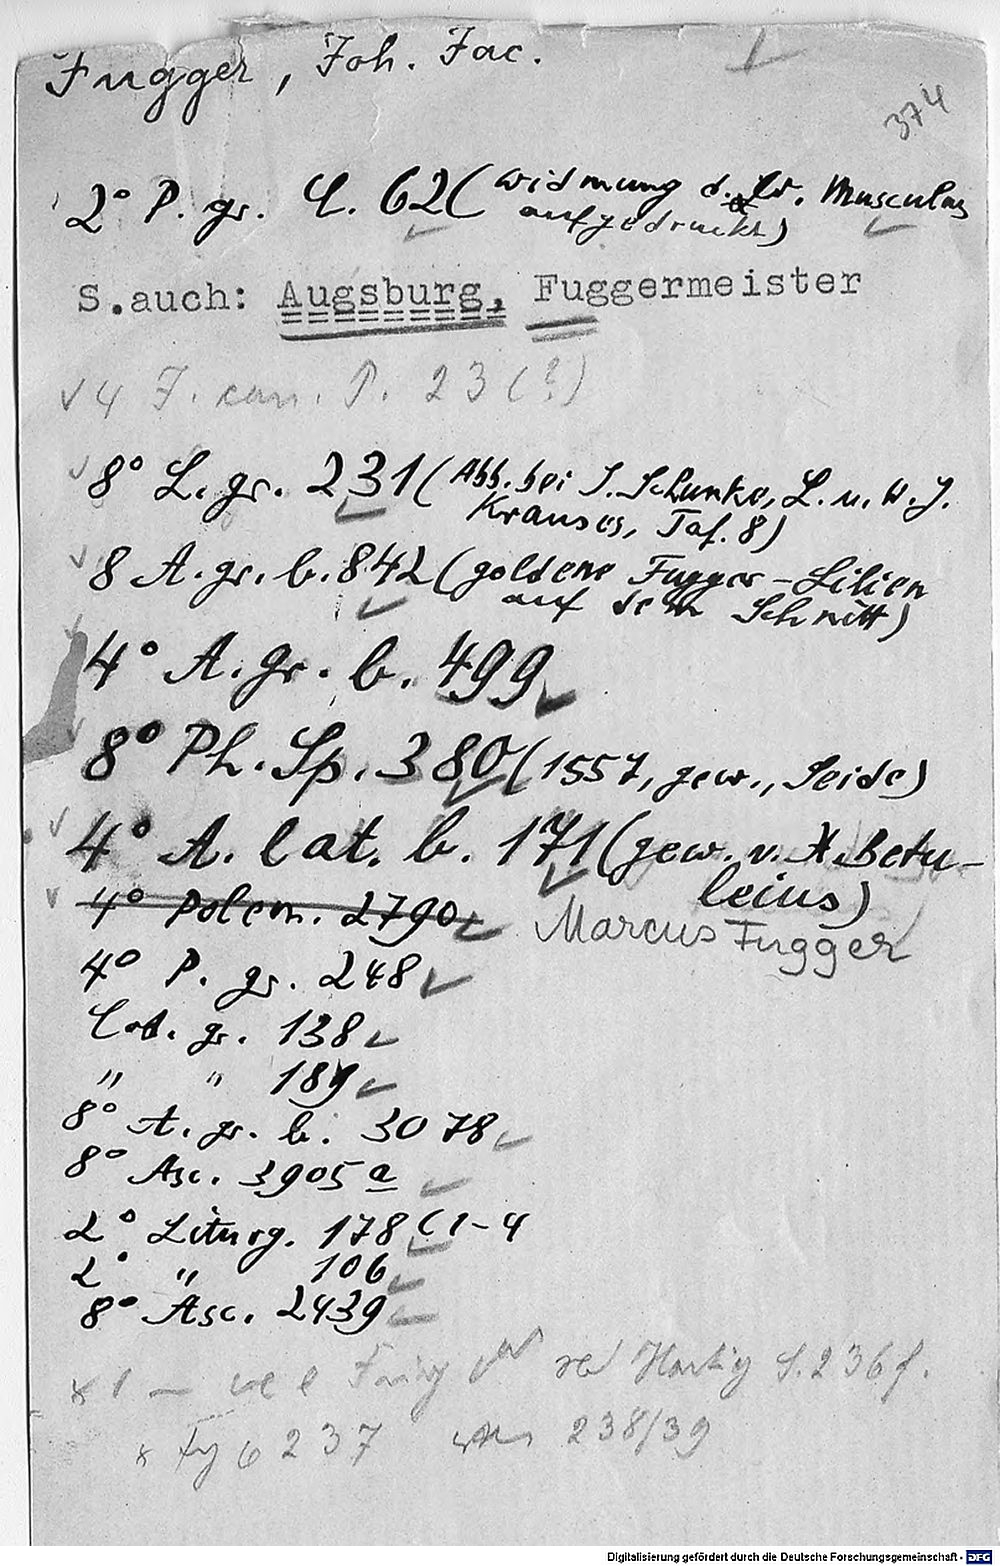 Fugger, Joh. Jac.
374
2° P. gr. C. 62 (Widmung d. Musculus
aufgedruckt)
S.auch: Augsburg, Fuggermeister
4 J. can. P. 23 (?)
8° L. gr. 231 (Abb. bei I. Schunke, L. u. W. J.
Krauses, Taf. 8)
8 A. gr. b. 842 (goldene Fugger-Lilien
auf dem Schnitt)
4° A. gr. b. 499
8° Ph. Sp. 380 (1557, gew., Seide)
4° A. lat. b. 171 (gew. v. X. Betu-
leius)
4° Polem. 2790 Marcus Fugger
4° P. gr. 248
Cod. gr. 138
" " 189
8° A. gr. b. 3078
8° Asc. 3905 a
2° Liturg. 178 (1-4
2° " 106
8° Asc. 2439
Hartig S. 236 f.
237 238/39
Digitalisierung gefördert durch die Deutsche Forschungsgemeinschaft - DFG